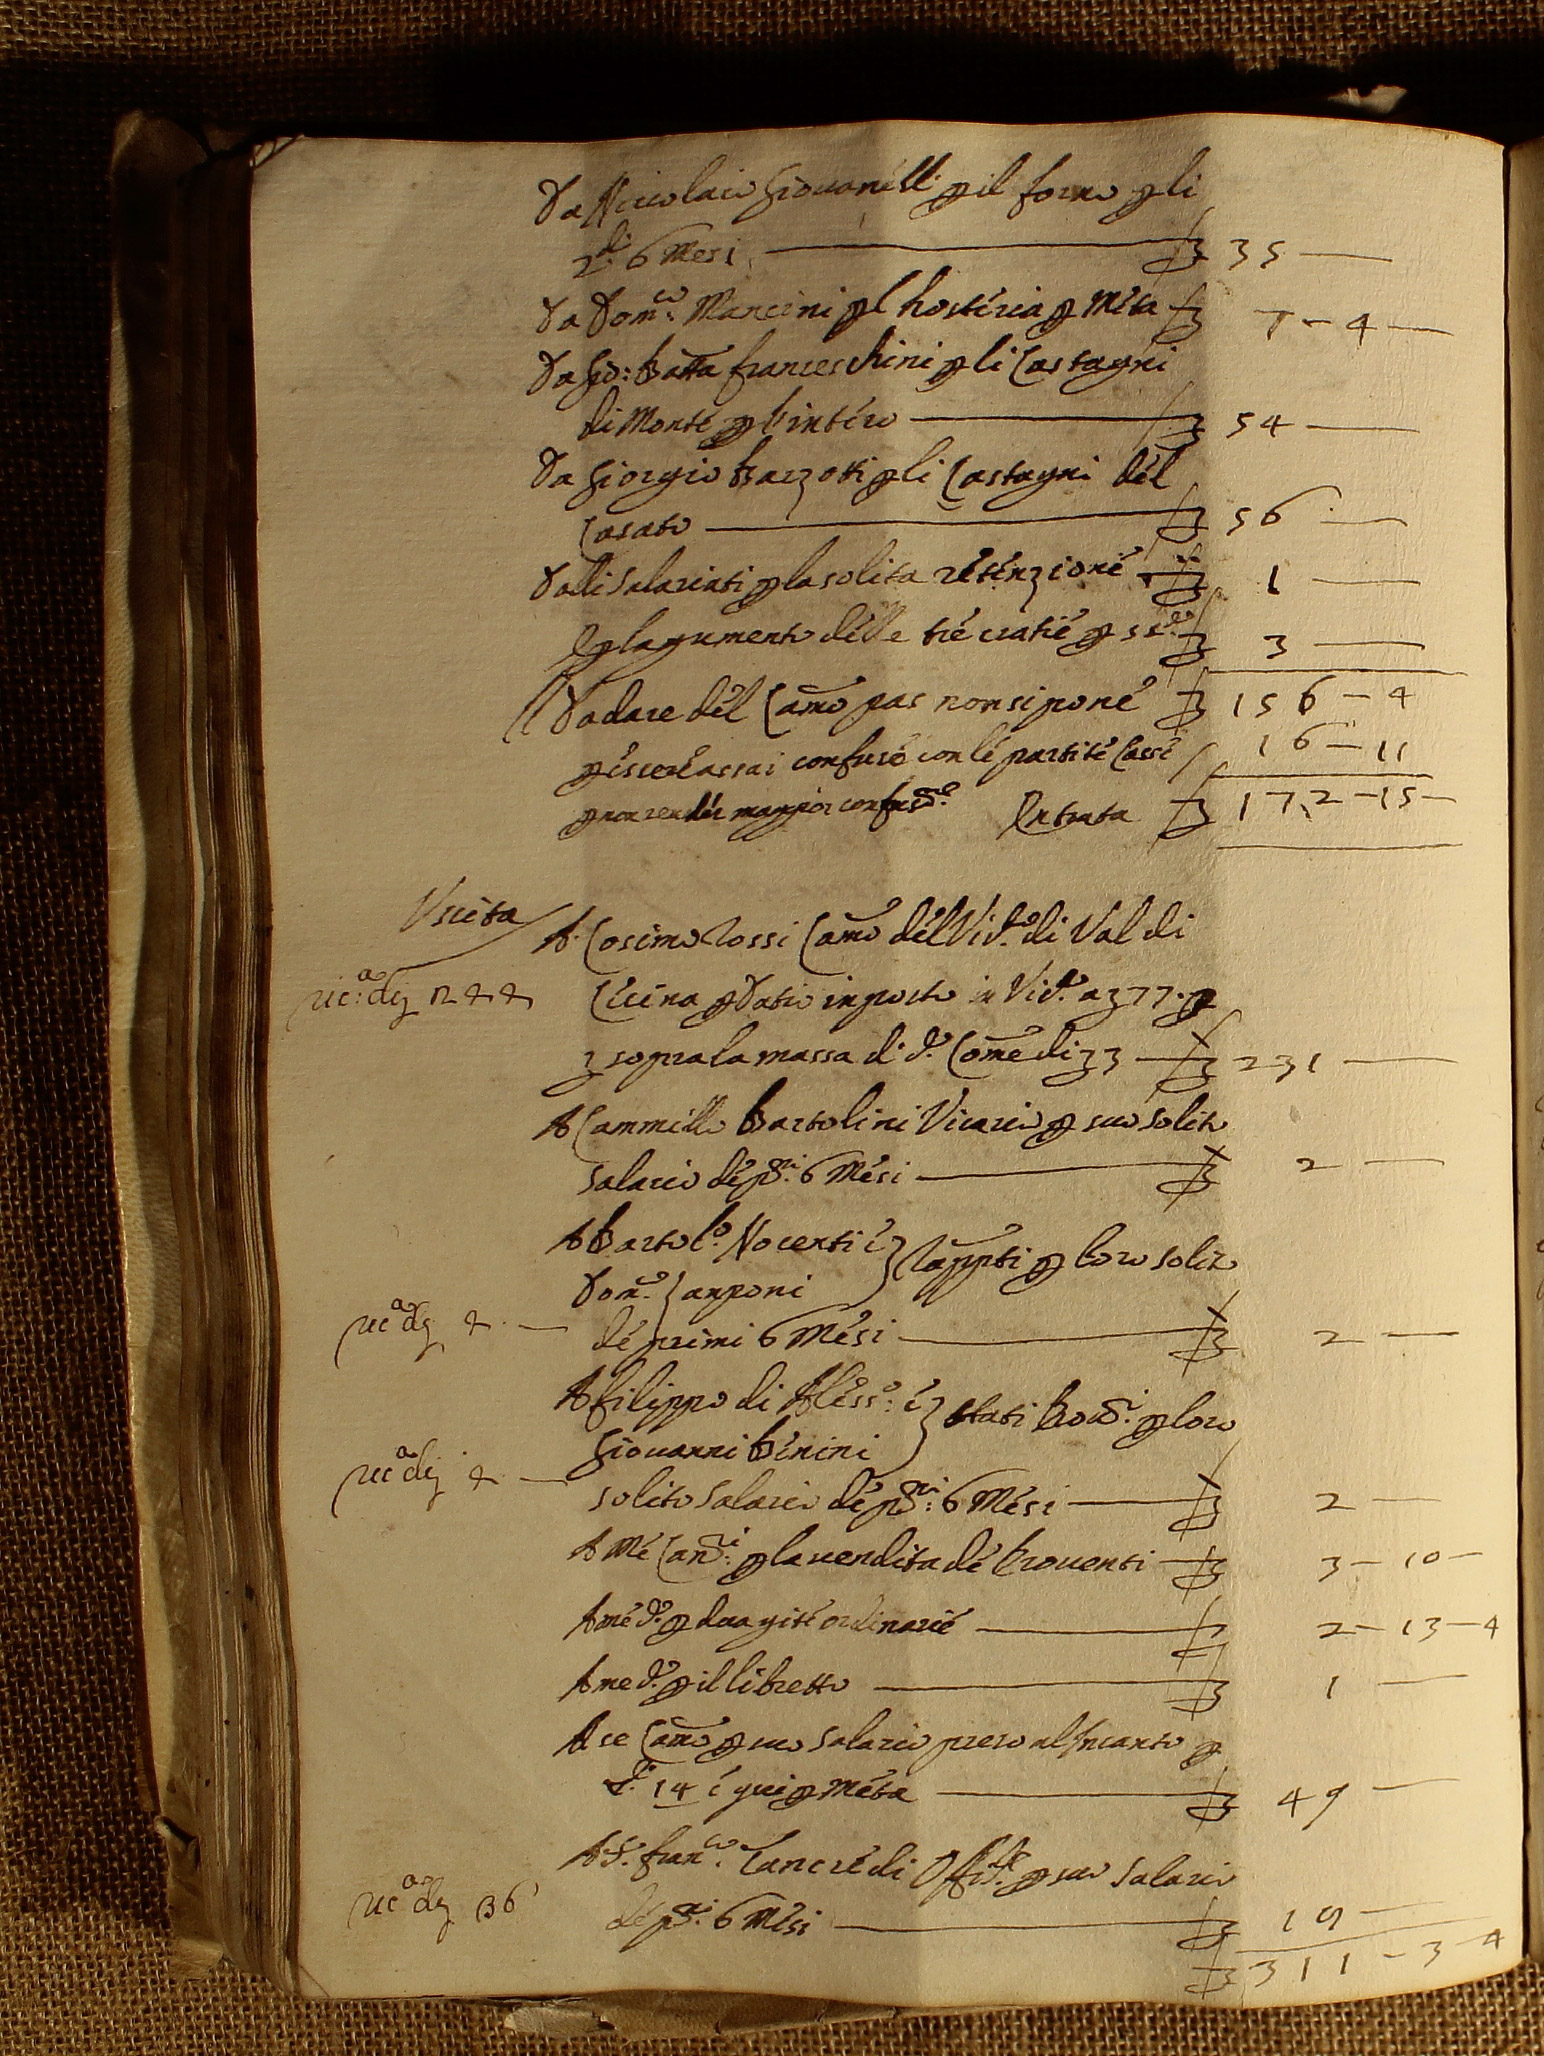 Da Niccolaio Giovanelli p il forno p li
2di 6 Mesi ₤ 35 —
Da Domco: Mancini p l hosteria p metà ₤ 7 - 4 —
Da Gio: Batta franceschini p li Castagni
di Monte p l'intero ₤ 54 —
Da Giorgio Barzotti p li Castagni del
Casato ₤ 56 —
Dalli Salariati p la solita retenzione ₤ 1 —
E p l agumento delle tre cratie p ₤ 3 —
Da dare del Camo non si pone ₤ 156 - 4
p essere assai confuse con le partite 16 - 11
p non render maggior confusne. Entrata ₤ 172 - 15 —
Uscita
A Cosimo Rossi Camo del Victo. di Val di
Cecina p Datio inposto in Victo. a 377. p
3 sopra la massa di do. Come di 33 ₤ 231 —
A Cammillo Bartolini Vicario p suo solito
salario de pmi: 6 Mesi ₤ 2 —
A Bartolo. Nocenti e
Domco. Zanponi } Rappti p loro solito
de primi 6 Mesi ₤ 2 —
A filippo di Alesso: e
Giovanni Benini } stati p loro
solito salario de pmi: 6 Mesi ₤ 2 —
A Me Canri: p la vendita de Proventi ₤ 3 - 10 —
A me do. p dua gite ordinarie ₤ 2 - 13 - 4
A me do. p il libretto ₤ 1 —
A se Camo p suo salario preso al Incanto p
14 e qui p metà ₤ 49 —
A S. Franco. Tancredi p suo salario
de pmi: 6 Mesi ₤ 19 —
₤ 311 - 3 - 4